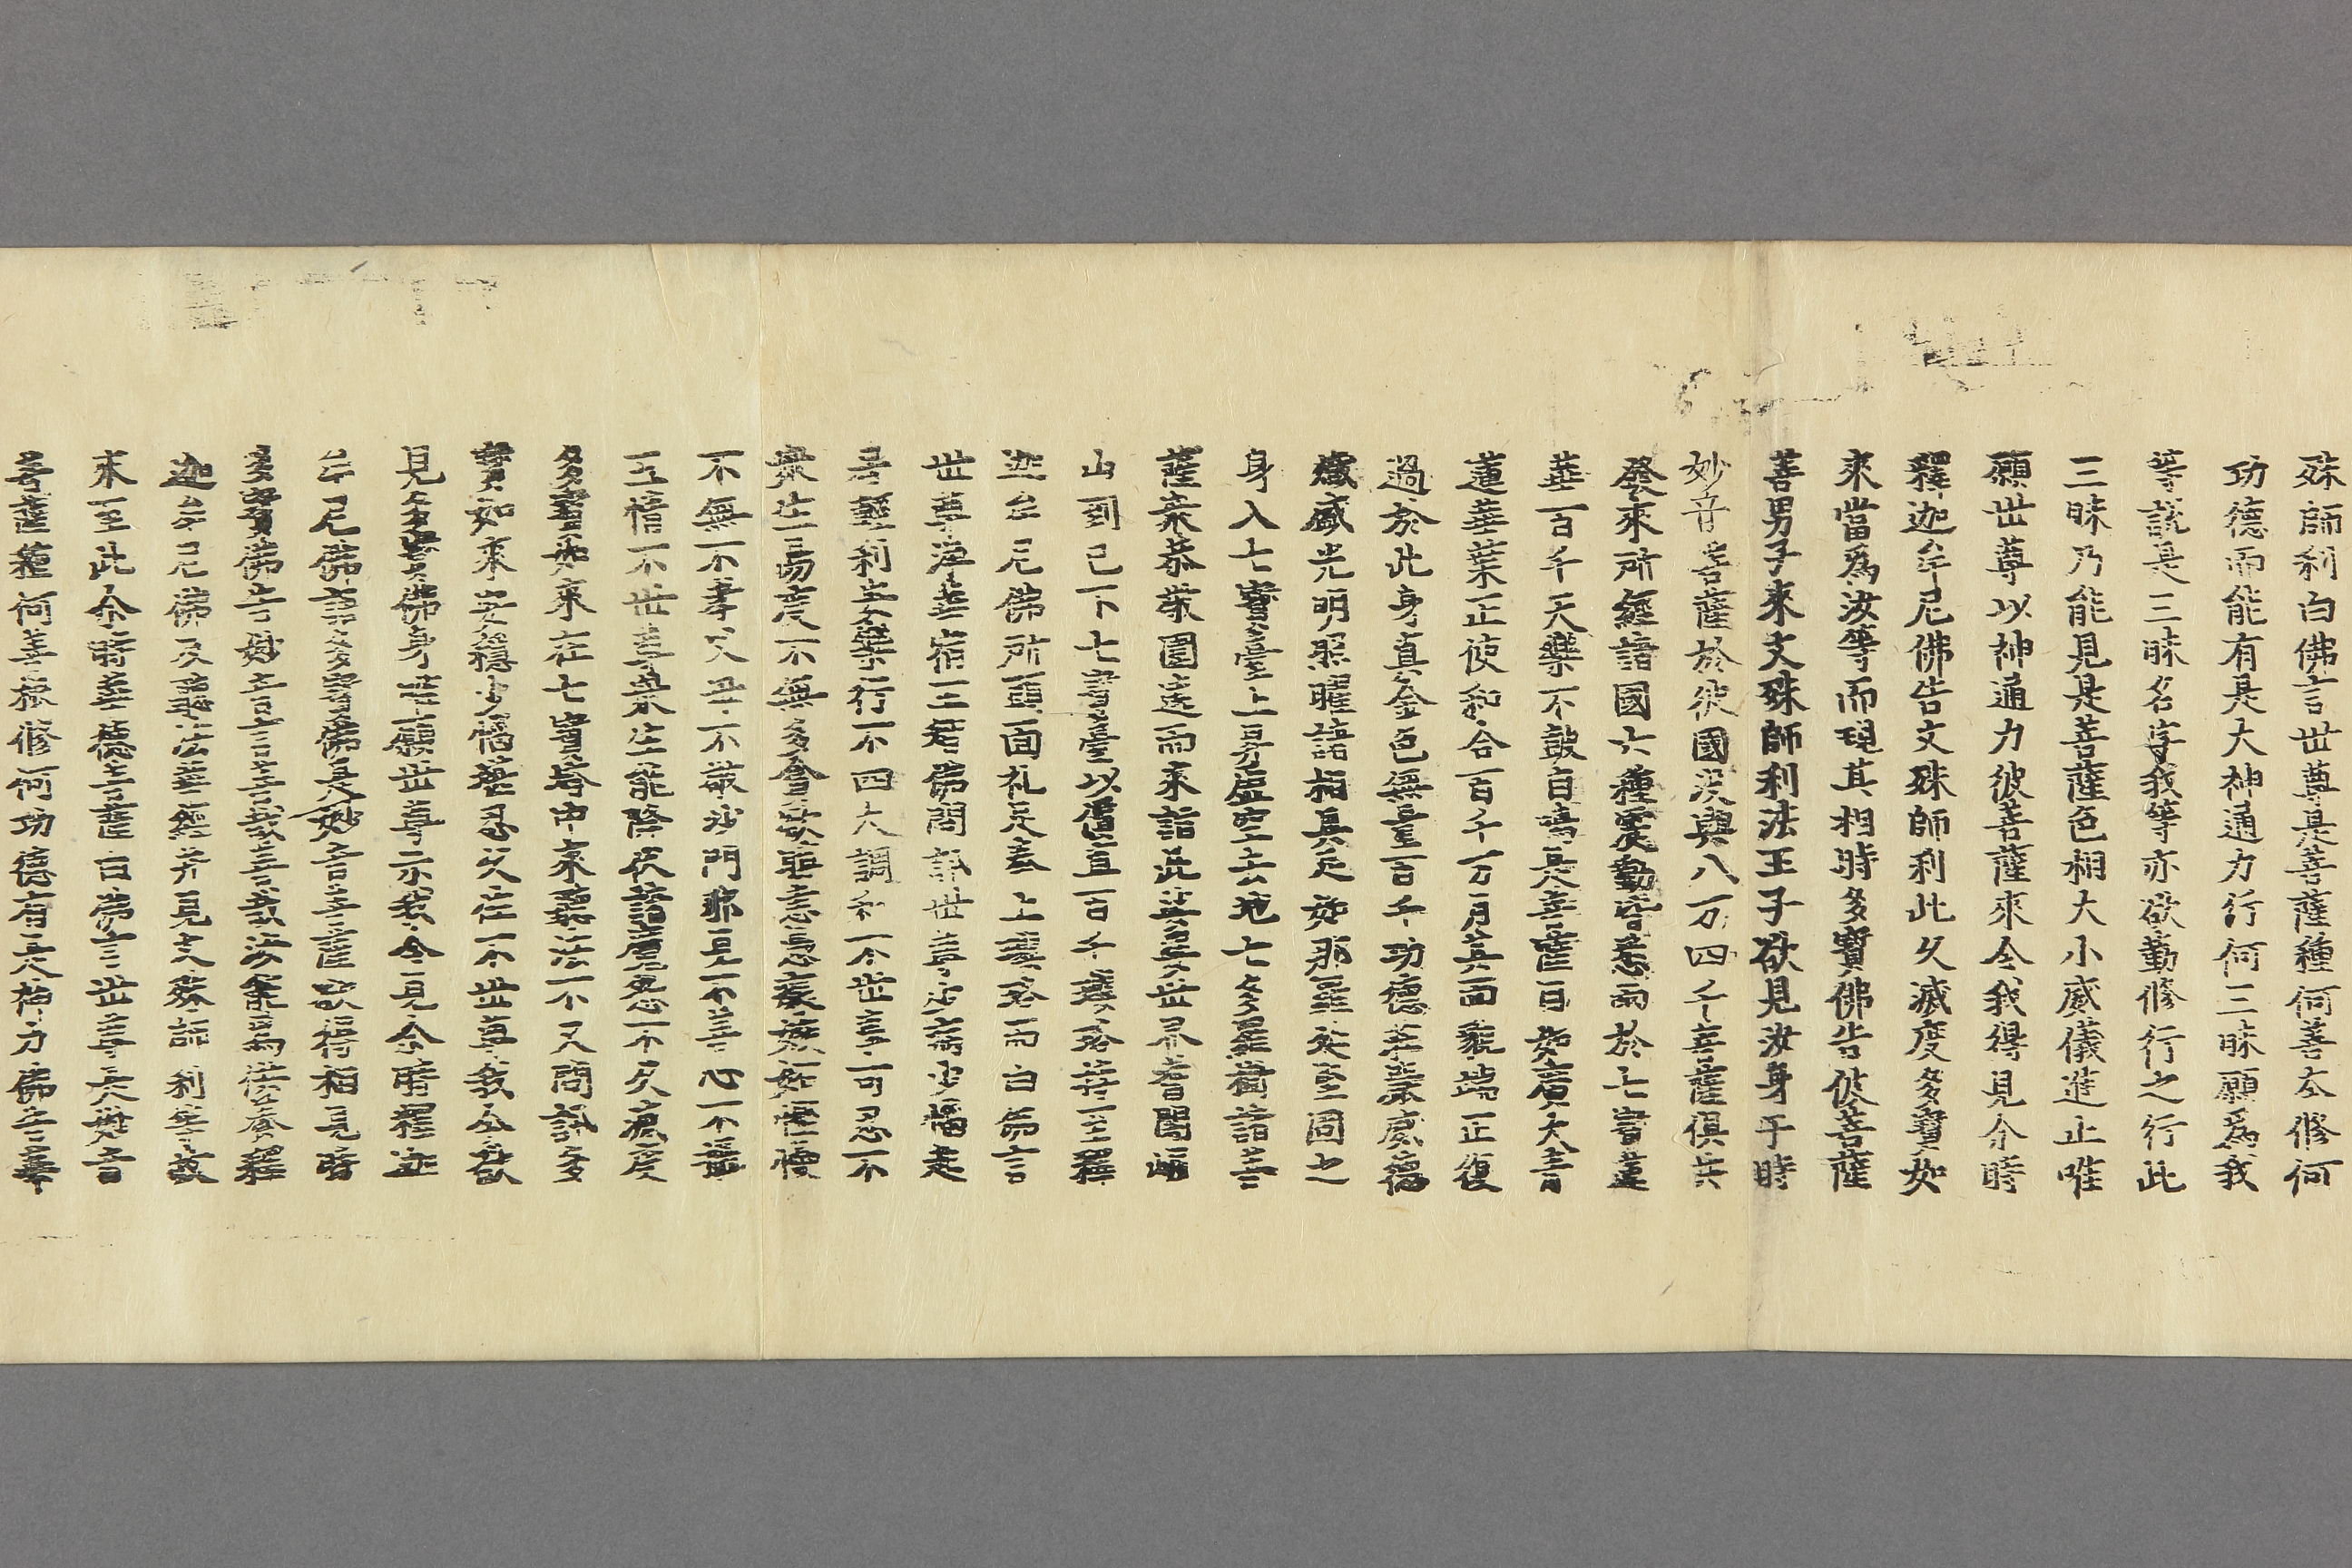 殊師利白佛言世尊是菩薩種何善本修何
功德而能有是大神通力行何三昧願爲我
等說是三昧名字我等亦欲勤修行之行此
三昧乃能見是菩薩色相大小威儀進止唯
願世尊以神通力彼菩薩來令我得見尒時
釋迦牟尼佛告文殊師利此久滅度多寶如
來當爲汝等而現其相時多寶佛告彼菩薩
善男子來文殊師利法王子欲見汝身于時
妙音菩薩於彼國沒與八万四千菩薩俱共
發來所經諸國六種震動皆悉雨於七寶蓮
華百千天樂不鼓自鳴是菩薩目如廣大青
蓮華葉正使和合百千万月其面貌端正復
過於此身真金色無量百千功德莊嚴威德
熾盛光明照曜諸相具足如那羅延堅固之
身入七寶臺上昇虛空去地七多羅樹諸菩
薩衆恭敬圍遶而來詣此娑婆世界耆闍崛
山到已下七寶臺以價直百千瓔珞持至釋
迦牟尼佛所頭面礼足奉上瓔珞而白佛言
世尊淨華宿王智佛問訊世尊少病少惱起
居輕利安樂行不四大調和不世事可忍不
衆生易度不無多貪欲瞋恚愚癡嫉妬慳慢
不無不孝父母不敬沙門邪見不善心不攝
五情不世尊衆生能降伏諸魔怨不久滅度
多寶如來在七寶塔中來聽法不又問訊多
寶如來安穩少惱堪忍久住不世尊我今欲
見多寶佛身唯願世尊示我令見尒時釋迦
牟尼佛語多寶佛是妙音菩薩欲得相見時
多寶佛告妙音言善哉善哉汝能爲供養釋
迦牟尼佛及聽法華經并見文殊師利等故
來至此尒時華德菩薩白佛言世尊是妙音
菩薩種何善根修何功德有是神力佛告華